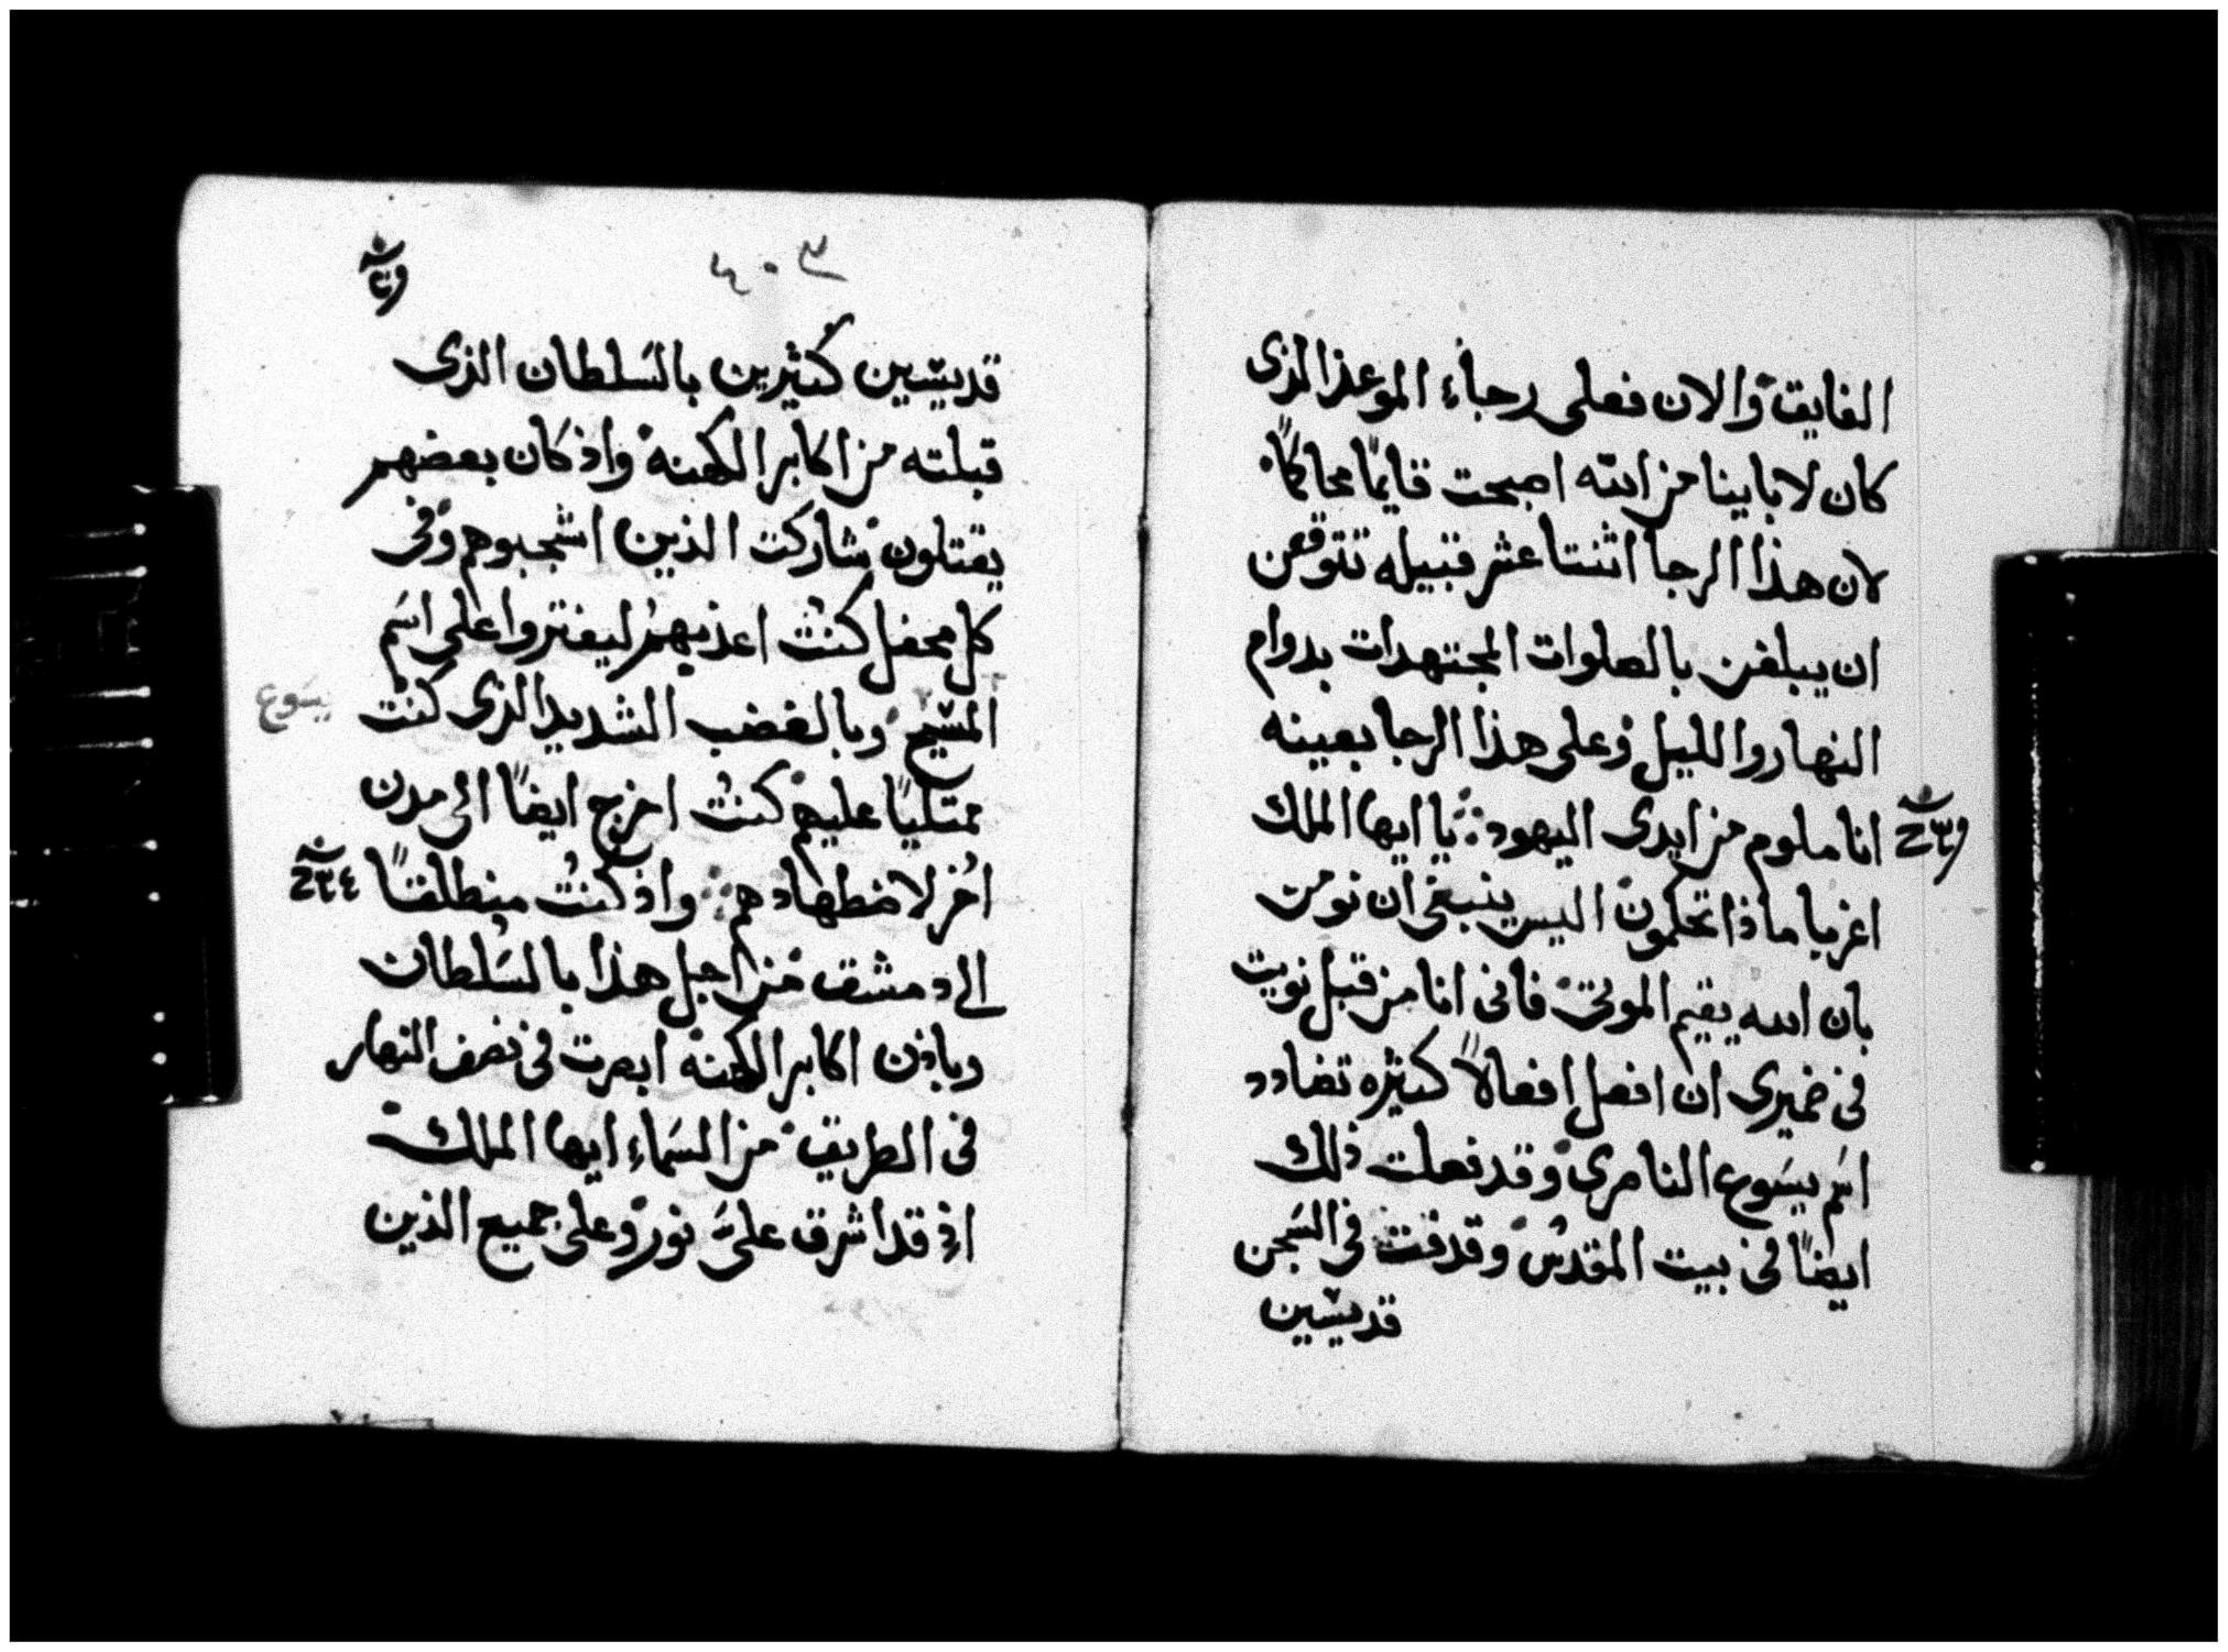 الفايق والان فعلى رجاء الموعد الذى
كان لابايينا من الله اصبحت قايمًا محاكمًا
لان هذا الرجا اثنتا عشر قبيله تتوقعن
ان يبلغن بالصلوات المجتهدات بدوام
النهار والليل وعلى هذا الرجا بعينه
انا ملوم من ايدى اليهود يا ايها الملك
اغربا ماذا تحكمون اليس ينبغى ان نومن
بان الله يقيم الموتى فانى انا من قبل نويت
فى ضميرى ان افعل افعالاً كثيره تضادد
اسم يسوع الناصرى وقد فعلت ذلك
ايضًا فى بيت المقدس وقدفت فى السجن
قديسين
٤٠٣
قديسين كثيرين بالسلطان الذى
قبلته من اكابر الكهنة واذ كان بعضهم
يقتلون شاركت الذين اشجبوهم وفى
كل محفل كنت اعذبهم ليفتروا على اسم
يسوع
المسيح وبالغضب الشديد الذى كنت
ممتليًا عليهم كنت اخرج ايضًا الى مدن
اخر لاضطهادهم واذ كنت منطلقًا
الى دمشق من اجل هذا بالسلطان
وباذن اكابر الكهنة ابصرت فى نصف النهار
فى الطريق من السماء ايها الملك
اذ قد اشرق علىّ نور وعلى جميع الذين